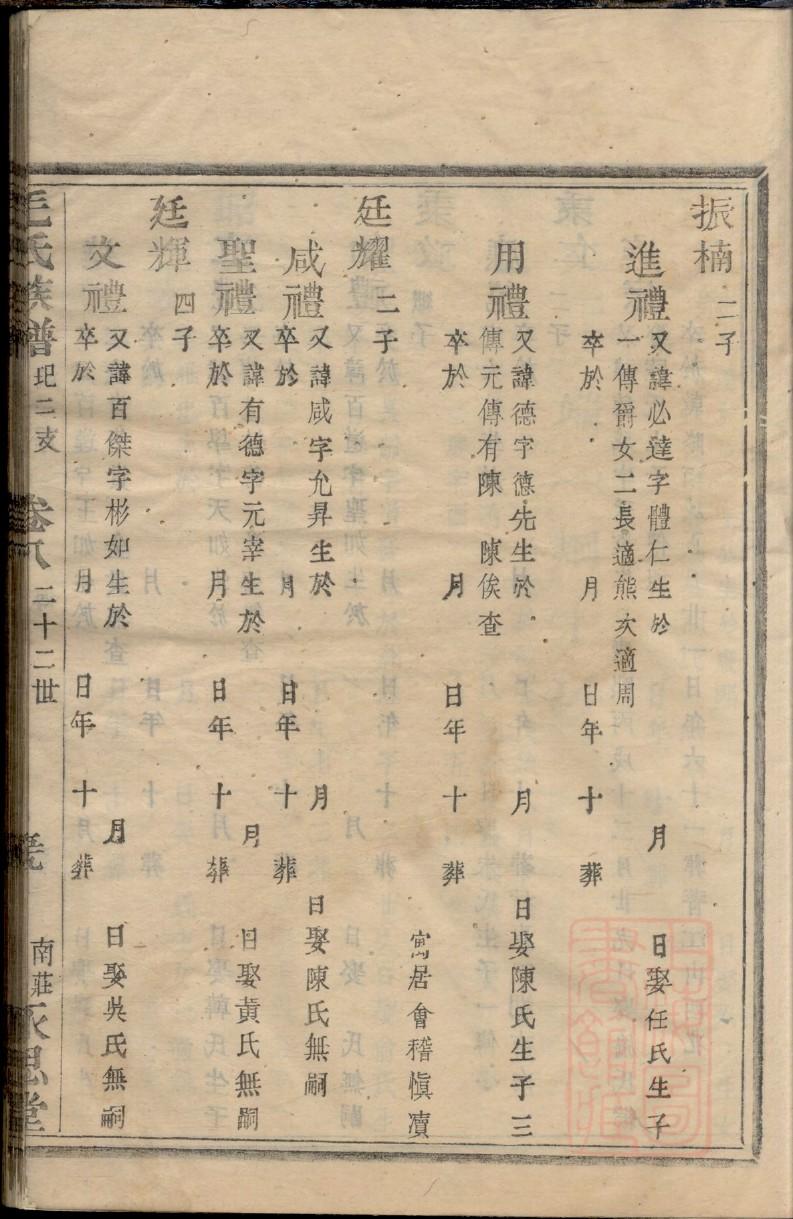 振楠 二子
進禮 又諱必達字體仁生於 月 日娶任氏生子
一傳爵女二長適熊次適周
卒於 月 日年 十 葬
用禮 又諱德字德先生於 月 日娶陳氏生子三
傳元傳有陳 陳俟查
卒於 月 日年 十 葬
寓居會稽慎凟
廷耀 二子
咸禮 又諱咸字允昇生於 月 日娶陳氏無嗣
卒於 月 日年 十 葬
聖禮 又諱有德字元宰生於 月 日娶黃氏無嗣
卒於 月 日年 十 葬
廷輝 四子
文禮 又諱百傑字彬如生於 月 日娶吳氏無嗣
卒於 月 日年 十 葬
毛氏族譜 玘二支 卷八 二十二世 南莊永思堂